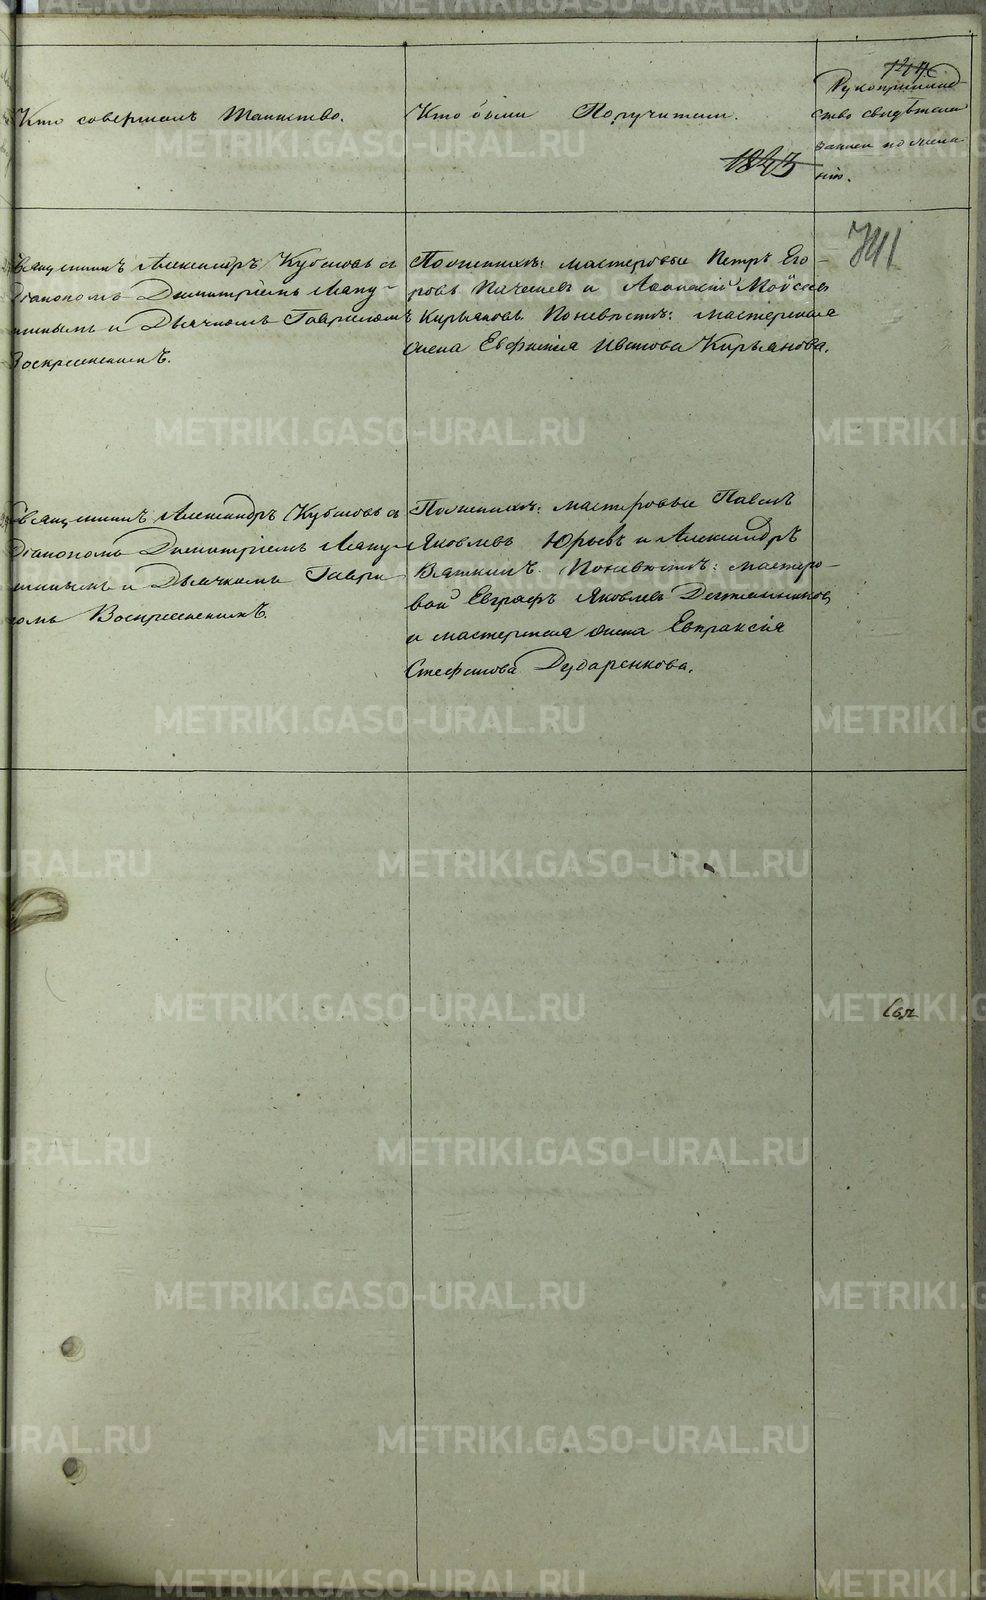 Кто совершалъ Таинство.
Кто были Поручители.
Рукоприклад
ство свидѣтелей
записи по жела
нію.
1843
741
Священникъ Александръ Кубасовъ съ
Діакономъ Димитріемъ Лапу-
тинымъ и Дьячкомъ Гавриломъ
Воскресенскимъ.
По женихѣ: мастеровые Петръ Его-
ровъ и Моѵсеевъ
Кирьяновъ. По невѣстѣ: мастерская
жена Евфимія Иванова Кирьянова.
Священникъ Александръ Кубасовъ съ
Діакономъ Димитріемъ Лапу-
тинымъ и Дьячкомъ Гаври
ломъ Воскресенскимъ.
По женихѣ: мастеровые Павелъ
Яковлевъ Юрьевъ и Александръ
Вяткинъ. По невѣстѣ: мастеро-
вой Евграфъ Яковлевъ
и мастерская жена Евпраксія
Стефанова Дударенкова.
METRIKI.GASO-URAL.RU